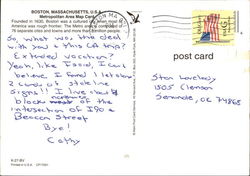 BOSTON, MASSACHUSETTS, U.S.A.
Metropolitan Area Map Card
Founded in 1630, Boston was a cultural city when most of
America was rough frontier. The Metro area is comprised of
76 separate cities and towns and more than three million people.
So what was the deal
with you & this CA trip?
Extended vacation?
Yeah, like I said, I can't
believe I found 1 let alone
2 cards of
signs! I live about 6
blocks west of the
intersection of I90 &
Beacon Street
Bye!
Cathy
post card
Stan
1505 Clemson
Seminole, OK 74868
USA